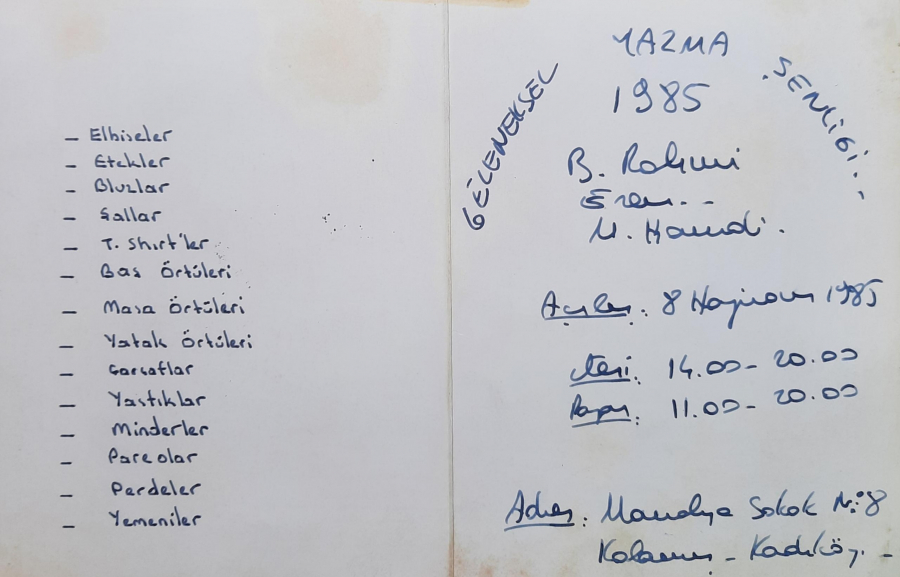 - Elbiseler
- Etekler
- Bluzlar
- Şallar
- T. Shirt'ler
- Baş Örtüleri
- Masa Örtüleri
- Yatak Örtüleri
- Çarşaflar
- Yastıklar
- Minderler
- Pareolar
- Perdeler
- Yemeniler
GELENEKSEL YAZMA ŞENLİĞİ..
1985
B. Rahmi
Eren..
M. Hamdi.
Açılış: 8 Haziran 1985
C.tesi: 14.00-20.00
Pazar: 11.00-20.00
Adres: Manolya Sokak No:8
Kalamış - Kadıköy. -